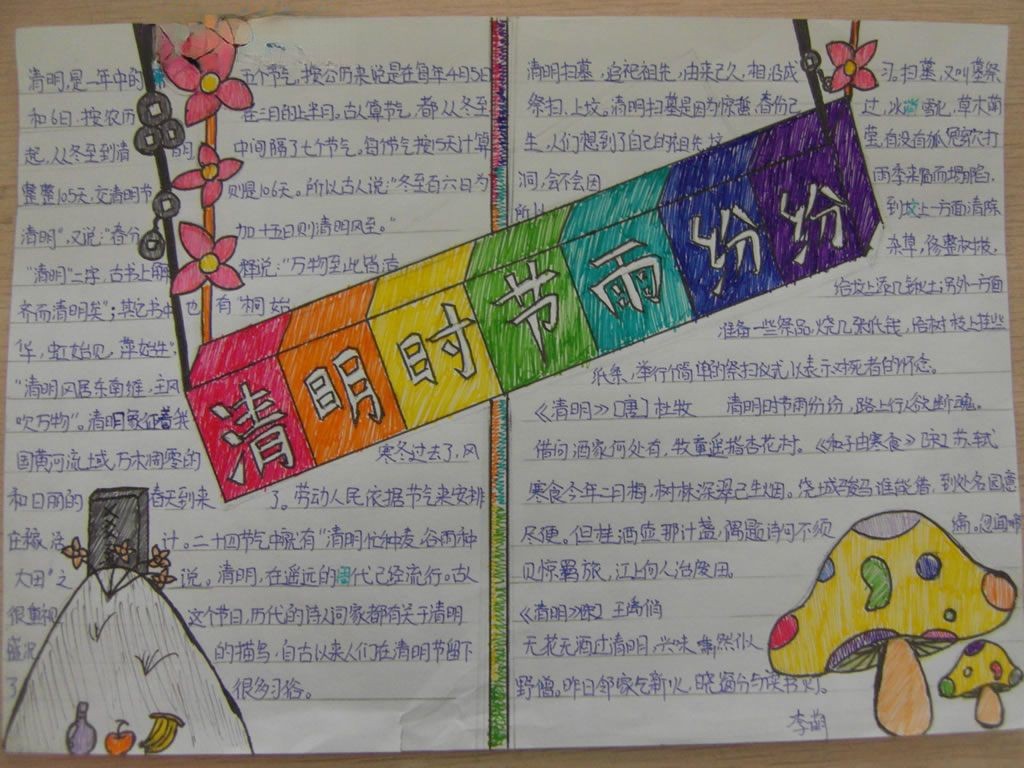 清明时节雨纷纷
清明,是一年中的 五个节气,按公历来说是在每年4月5日
和6日,按农历 在三月的上半月。古人算节气,都从冬至
起,从冬至到清明, 中间隔了七个节气。每个节气按15天计算
整整105天,交清明节 则是106天。所以古人说:“冬至百六日为
清明”,又说:“春分 加十五日则清明风至。”
“清明”二字,古书上 释说:“万物至此皆洁
齐而清明矣”;其它书中也有“桐始
华,虹始见,萍始生”,
“清明风居东南维,主风
吹万物”。清明象征着我
国黄河流域,万木凋零的 寒冬过去了,风
和日丽的 春天到来 了。劳动人民依据节气来安排
计。二十四节气中就有“清明忙种麦,谷雨种
大田”之 说。清明,在遥远的 代已经流行。古人
很重视 这个节日,历代的诗人词家都有关于清明
的描写,自古以来人们在清明节留下
了 很多习俗。
清明扫墓,追祀祖先,由来已久,相沿成 习。扫墓,又叫墓祭
祭扫、上坟。清明扫墓是因为 过,冰 雪化,草木萌
生,人们想到了自己的祖先坟 茔,有没有狐兔穿穴打
洞,会不会因 雨季来临而塌陷,
所以 到坟上一方面清除
杂草,修整树枝,
给坟上添几锹土;另外一方面
准备一些祭品,烧几张纸钱,给树枝上挂些
纸条,举行个简单的祭扫仪式,以表示对死者的怀念。
《清明》〔唐〕杜牧 清明时节雨纷纷,路上行人欲断魂。
借问酒家何处有,牧童遥指杏花村。《和子由寒食》〔宋〕苏轼
寒食今年二月晦,树林深翠已生烟。绕城骏马谁能借,到处名园意
尽便。但挂酒壶那计盏,偶题诗句不须 编。忽闻啼
贝惊羁旅,江上何人治废田。
《清明》〔宋〕王禹偁
无花无酒过清明,兴味 然似
野僧。昨日邻家乞新火,晓窗分与读书灯。
李萌